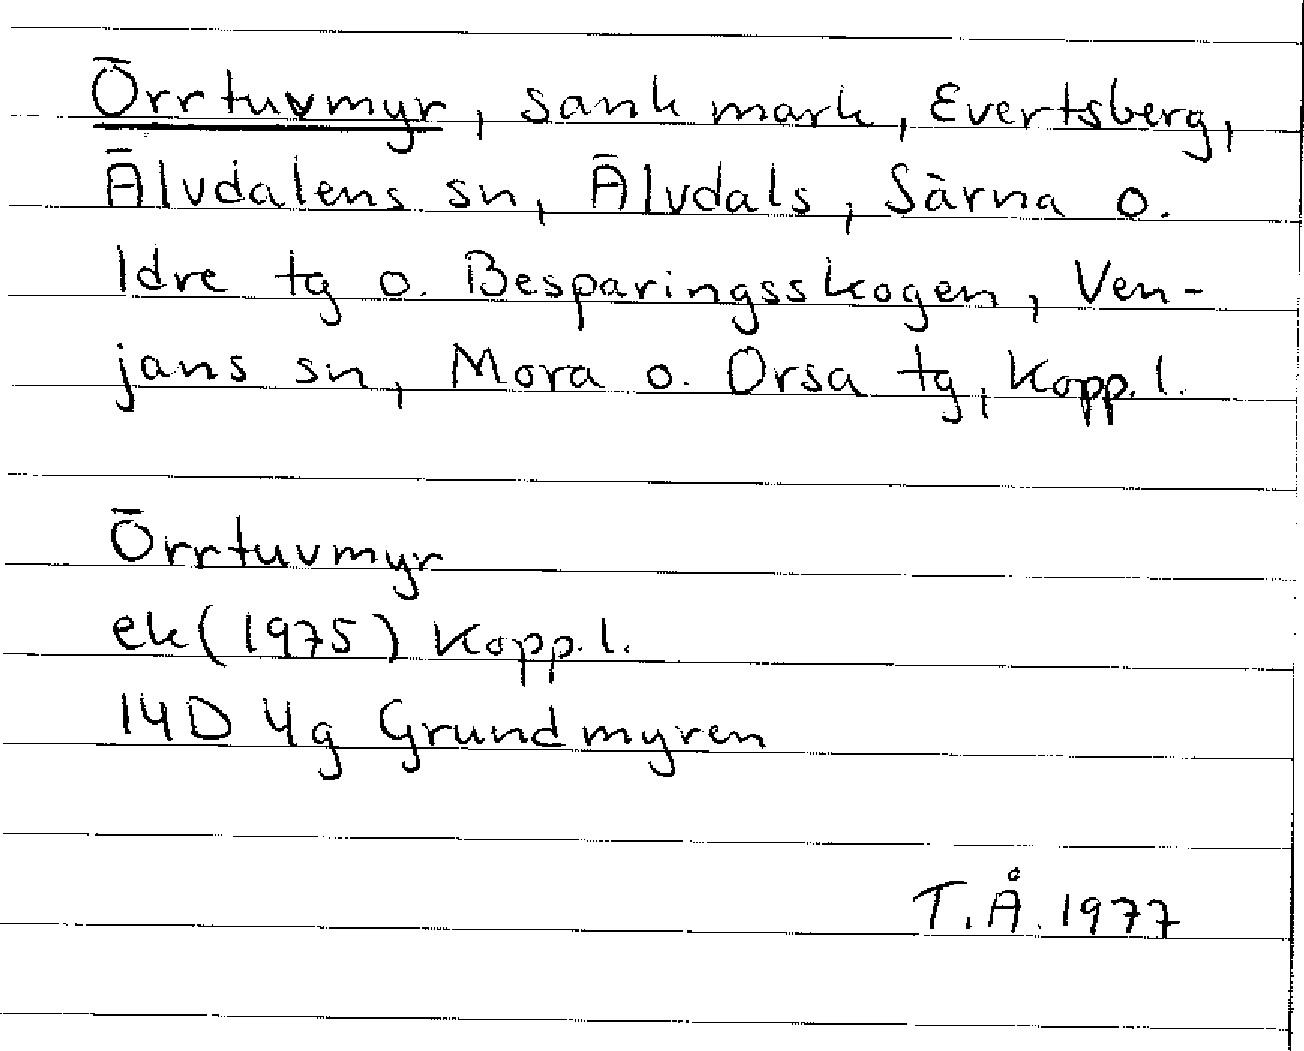 Örrtuvmyr, sank mark, Evertsberg,
Älvdalens sn, Älvdals, Särna o.
Idre tg o. Besparingsskogen, Ven-
jans sn, Mora o. Orsa tg, Kopp. l.
Örrtuvmyr
ek (1975) Kopp. l.
14D 4g Grundmyren
T.Å. 1977